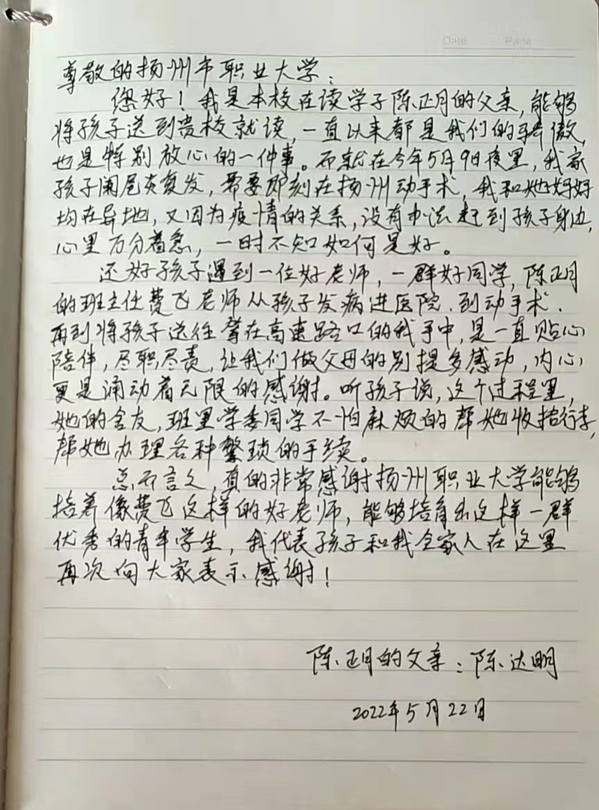 Date Page
尊敬的扬州市职业大学：
您好！我是本校在读学子陈正月的父亲，能够
将孩子送到贵校就读，一直以来都是我们的骄傲，
也是特别放心的一件事。而就在今年5月9日夜里，我家
孩子阑尾炎复发，需要即刻在扬州动手术，我和她妈妈
均在异地，又因为疫情的关系，没有办法赶到孩子身边，
心里万分着急，一时不知如何是好。
还好孩子遇到一位好老师，一群好同学，陈正月
的班主任费飞老师从孩子发病进医院，到动手术，
再到将孩子送往等在高速路口的我手中，是一直贴心
陪伴，尽职尽责，让我们做父母的别提多感动，内心
更是涌动着无限的感谢。听孩子说，这个过程里，
她的舍友，班里学委同学不怕麻烦的帮她收拾行李，
帮她办理各种繁琐的手续。
总而言之，真的非常感谢扬州职业大学能够
培养像费飞这样的好老师，能够培育出这样一群
优秀的青年学生，我代表孩子和我全家人在这里
再次向大家表示感谢！
陈正月的父亲：陈达明
2022年5月22日